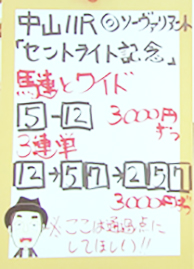 中山11R◎ソーヴァリアント
「セントライト記念」
馬連とワイド
5－12 3000円ずつ
3連単
12→57→257
3000円ずつ
※ここは通過点に
してほしい!!